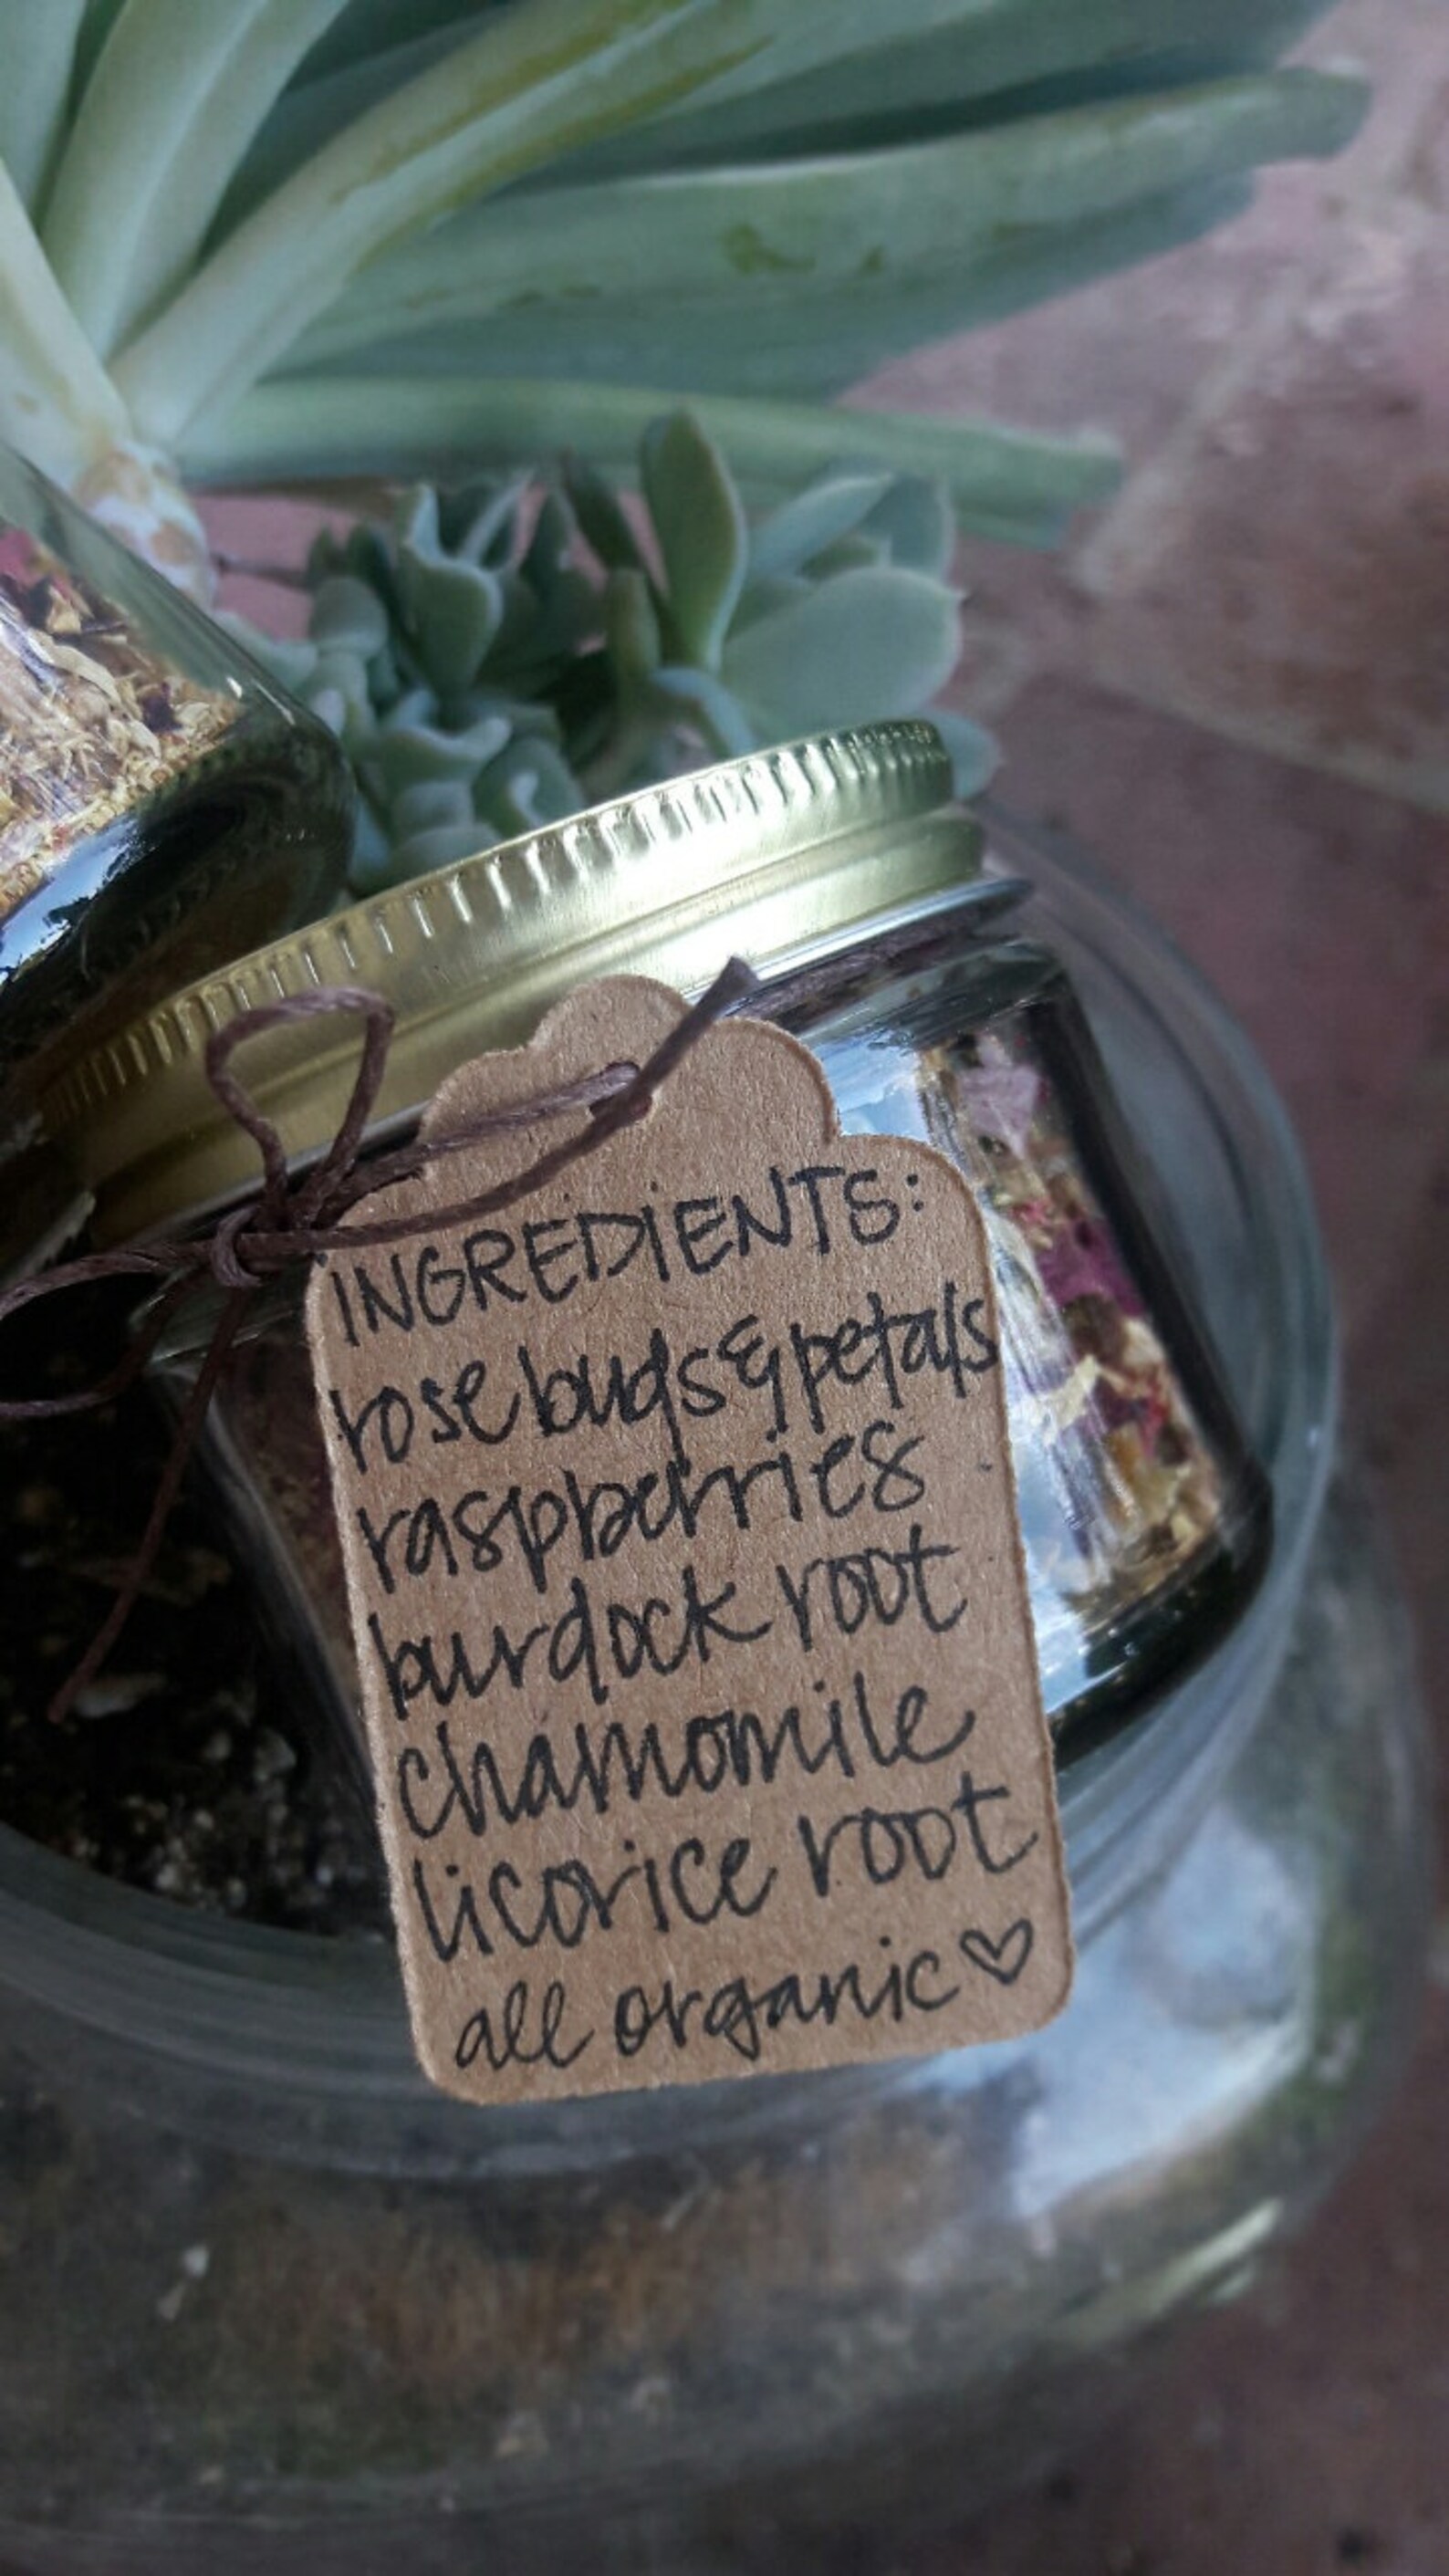 INGREDIENTS:
rose buds & petals
raspberries
burdock root
chamomile
licorice root
all organic ♡